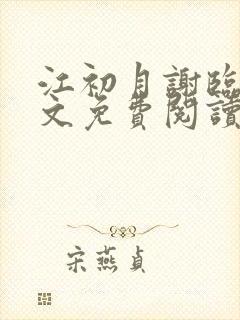 江初月謝臨
文免費閱讀
宋燕貞